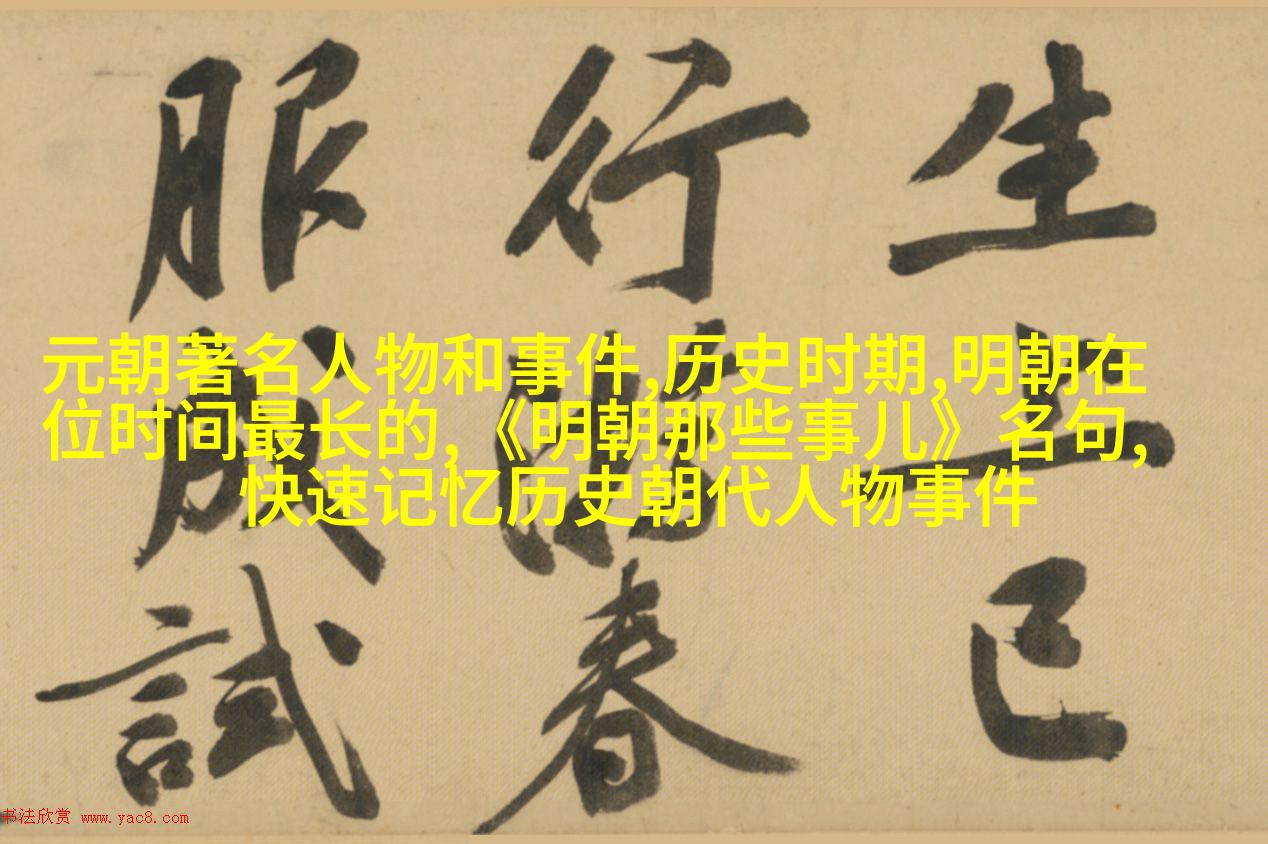 生上巳
行春
服成試
元朝著名人物和事件,历史时期,明朝在
位时间最长的,《明朝那些事儿》名句,
快速记忆历史朝代人物事件
书法欣赏 www.yac8.com